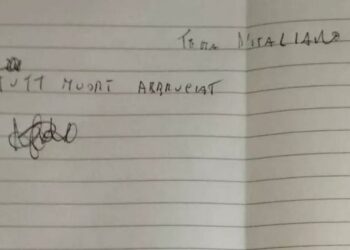 TEMA D'ITALIANO
TUTT MUORT ABBRUCIAT